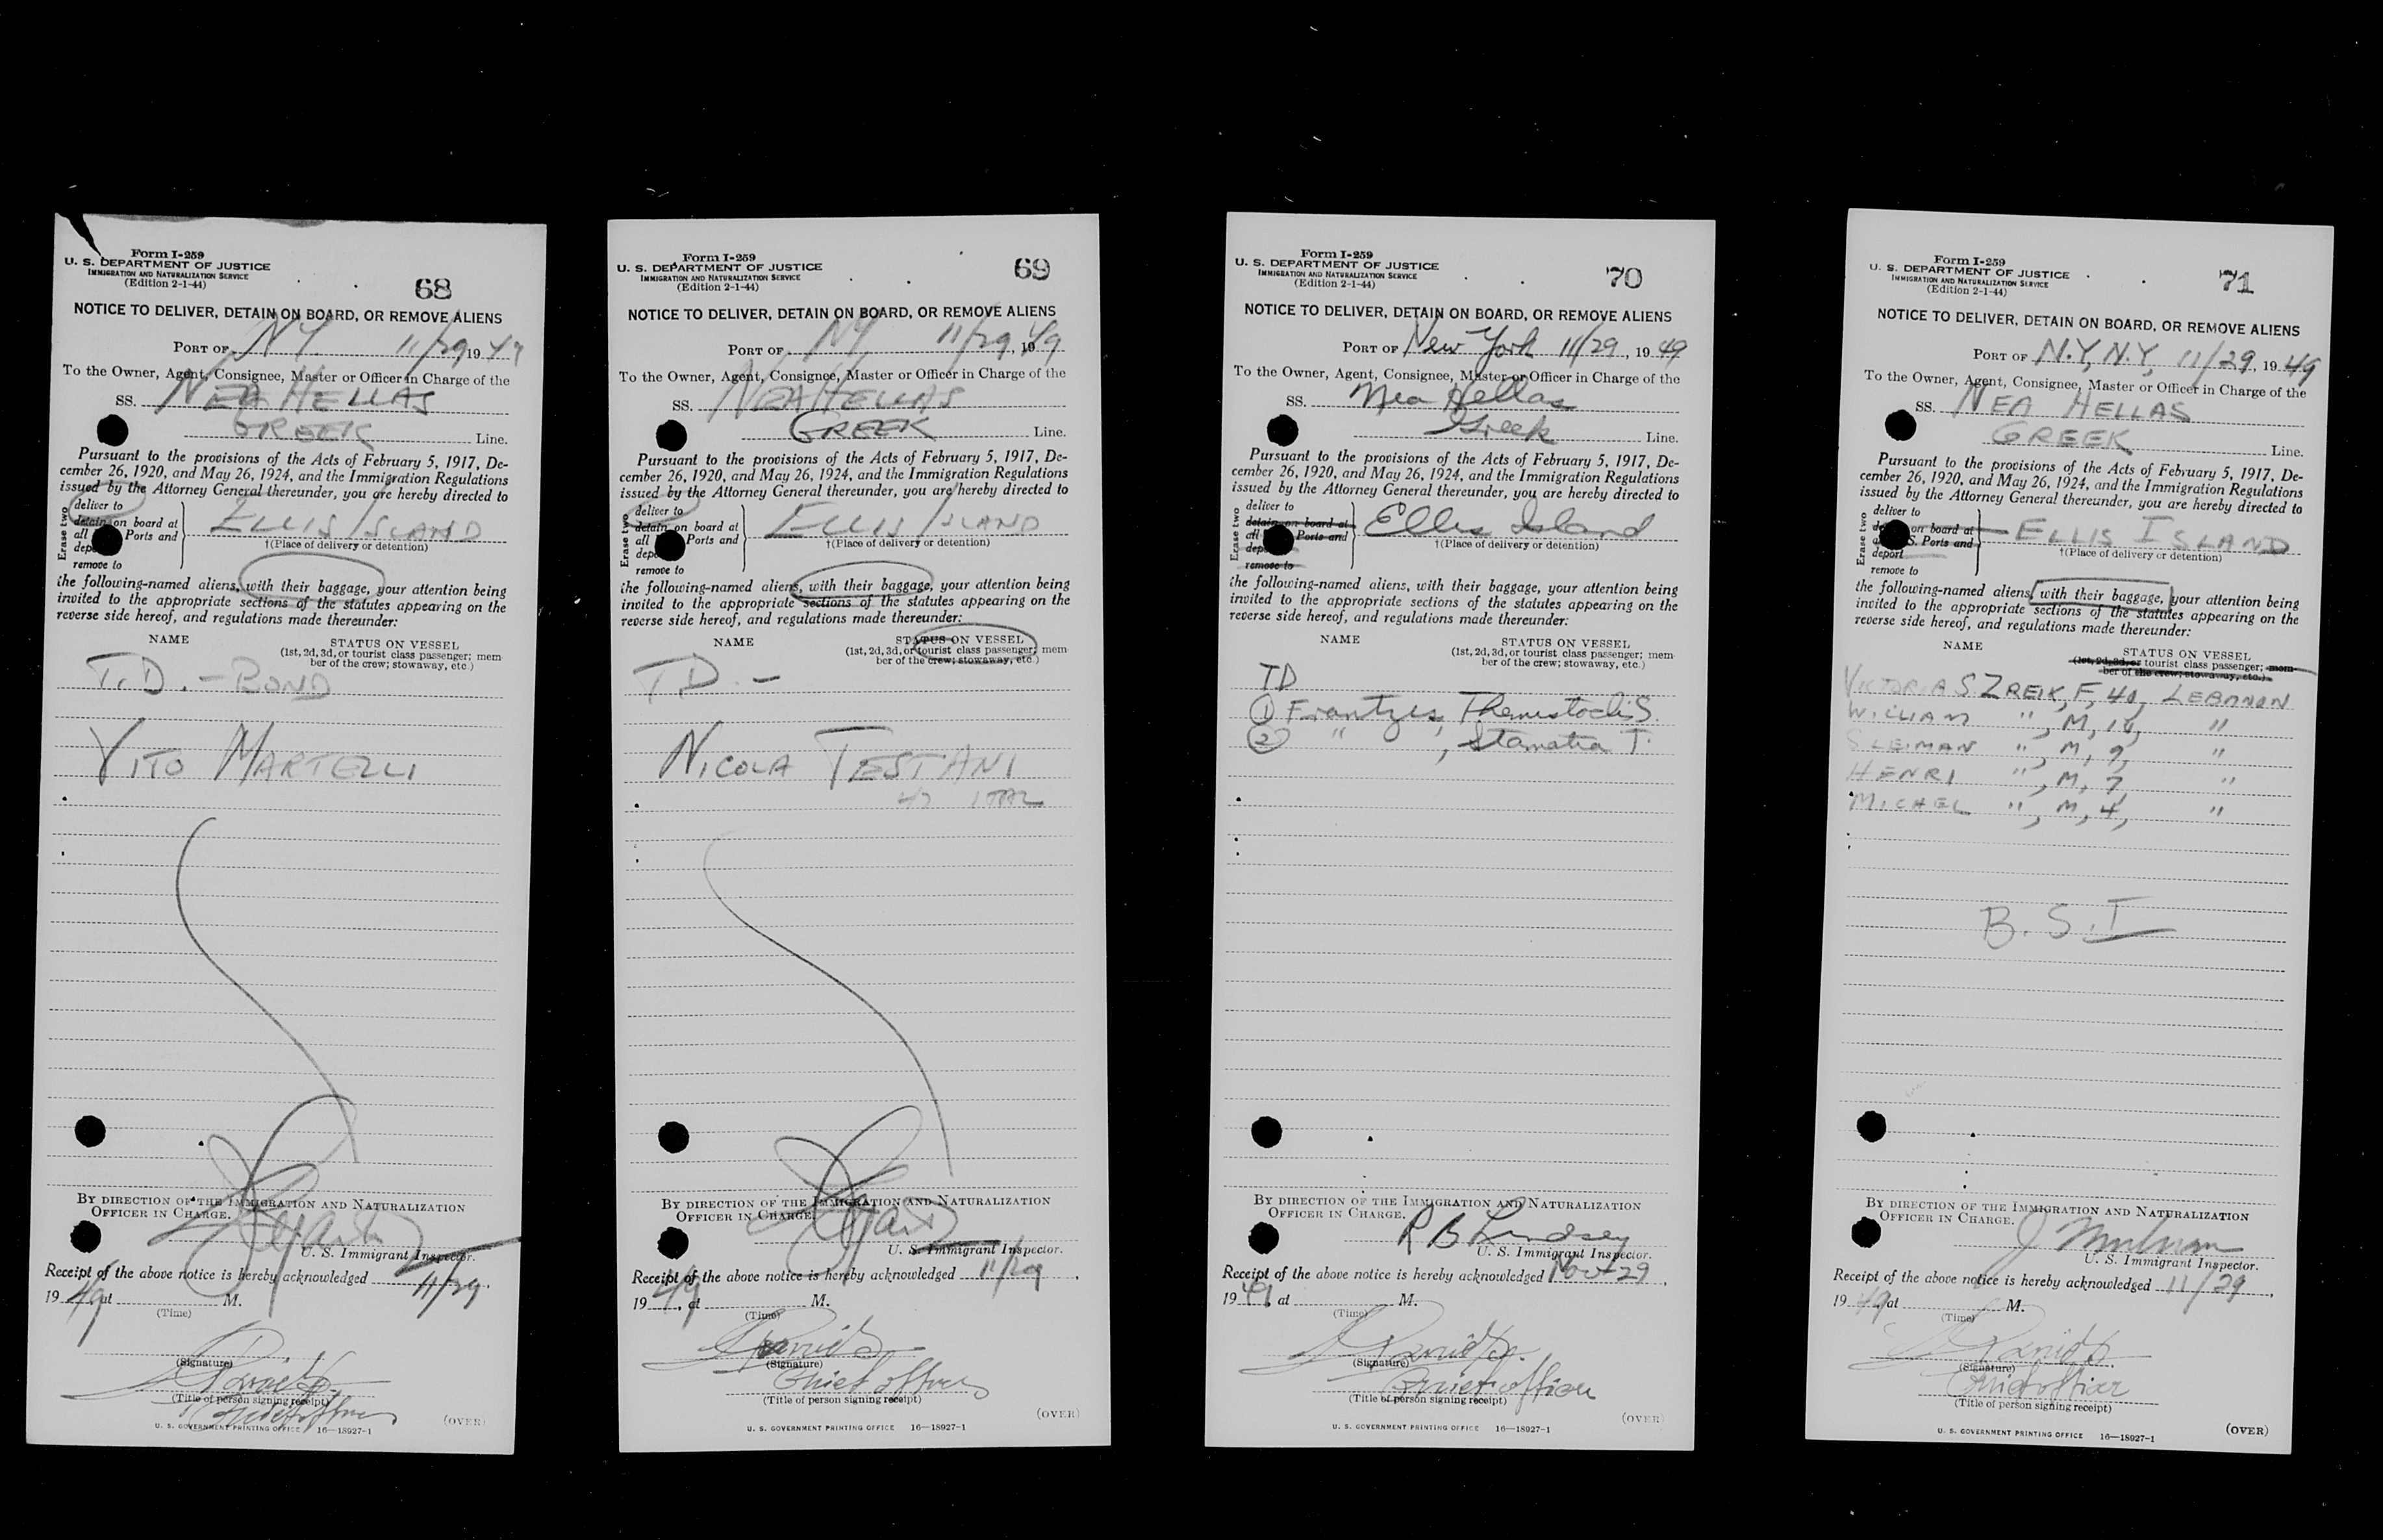 Form I-259
U. S. DEPARTMENT OF JUSTICE
IMMIGRATION AND NATURALIZATION SERVICE
(Edition 2-1-44)
68
NOTICE TO DELIVER, DETAIN ON BOARD, OR REMOVE ALIENS
PORT OF N.Y. 11/29, 1949
To the Owner, Agent, Consignee, Master or Officer in Charge of the
SS. NEA HELLAS
GREEK Line.
Pursuant to the provisions of the Acts of February 5, 1917, De-
cember 26, 1920, and May 26, 1924, and the Immigration Regulations
issued by the Attorney General thereunder, you are hereby directed to
Erase two
deliver to
detain on board at
all Ports and
dep
remove to
ELLIS ISLAND
†(Place of delivery or detention)
the following-named aliens, with their baggage, your attention being
invited to the appropriate sections of the statutes appearing on the
reverse side hereof, and regulations made thereunder:
NAME
STATUS ON VESSEL
(1st, 2d, 3d, or tourist class passenger; mem
ber of the crew; stowaway, etc.)
T.D. - BOND
VITO MARTELLI
BY DIRECTION OF THE IMMIGRATION AND NATURALIZATION
OFFICER IN CHARGE.
U. S. Immigrant Inspector.
Receipt of the above notice is hereby acknowledged 11/29.
1949, at M.
(Time)
(Signature)
(Title of person signing receipt)
Chief officer
U. S. GOVERNMENT PRINTING OFFICE 16—18927-1
(OVER)
Form I-259
U. S. DEPARTMENT OF JUSTICE
IMMIGRATION AND NATURALIZATION SERVICE
(Edition 2-1-44)
69
NOTICE TO DELIVER, DETAIN ON BOARD, OR REMOVE ALIENS
PORT OF NY 11/29, 1949
To the Owner, Agent, Consignee, Master or Officer in Charge of the
SS. NEA HELLAS
GREEK Line.
Pursuant to the provisions of the Acts of February 5, 1917, De-
cember 26, 1920, and May 26, 1924, and the Immigration Regulations
issued by the Attorney General thereunder, you are hereby directed to
Erase two
deliver to
detain on board at
all Ports and
dep
remove to
ELLIS ISLAND
†(Place of delivery or detention)
the following-named aliens, with their baggage, your attention being
invited to the appropriate sections of the statutes appearing on the
reverse side hereof, and regulations made thereunder:
NAME
STATUS ON VESSEL
(1st, 2d, 3d, or tourist class passenger; mem
ber of the crew; stowaway, etc.)
T.D. -
NICOLA TESTANI
BY DIRECTION OF THE IMMIGRATION AND NATURALIZATION
OFFICER IN CHARGE.
U. S. Immigrant Inspector.
Receipt of the above notice is hereby acknowledged 11/29.
1949, at M.
(Time)
(Signature)
Chief officer
(Title of person signing receipt)
U. S. GOVERNMENT PRINTING OFFICE 16—18927-1
(OVER)
Form I-259
U. S. DEPARTMENT OF JUSTICE
IMMIGRATION AND NATURALIZATION SERVICE
(Edition 2-1-44)
70
NOTICE TO DELIVER, DETAIN ON BOARD, OR REMOVE ALIENS
PORT OF New York 11/29, 1949
To the Owner, Agent, Consignee, Master or Officer in Charge of the
SS. Nea Hellas
Greek Line.
Pursuant to the provisions of the Acts of February 5, 1917, De-
cember 26, 1920, and May 26, 1924, and the Immigration Regulations
issued by the Attorney General thereunder, you are hereby directed to
Erase two
deliver to
detain on board at
all Ports and
dep
remove to
Ellis Island
†(Place of delivery or detention)
the following-named aliens, with their baggage, your attention being
invited to the appropriate sections of the statutes appearing on the
reverse side hereof, and regulations made thereunder:
NAME
STATUS ON VESSEL
(1st, 2d, 3d, or tourist class passenger; mem
ber of the crew; stowaway, etc.)
TD
① Frantzes, Themistocli S.
② " , Stamatia T.
BY DIRECTION OF THE IMMIGRATION AND NATURALIZATION
OFFICER IN CHARGE.
R B Lindsey
U. S. Immigrant Inspector.
Receipt of the above notice is hereby acknowledged Nov-29,
1949, at M.
(Time)
(Signature)
Chief officer
(Title of person signing receipt)
U. S. GOVERNMENT PRINTING OFFICE 16—18927-1
(OVER)
Form I-259
U. S. DEPARTMENT OF JUSTICE
IMMIGRATION AND NATURALIZATION SERVICE
(Edition 2-1-44)
71
NOTICE TO DELIVER, DETAIN ON BOARD, OR REMOVE ALIENS
PORT OF N.Y, N.Y, 11/29, 1949
To the Owner, Agent, Consignee, Master or Officer in Charge of the
SS. NEA HELLAS
GREEK Line.
Pursuant to the provisions of the Acts of February 5, 1917, De-
cember 26, 1920, and May 26, 1924, and the Immigration Regulations
issued by the Attorney General thereunder, you are hereby directed to
Erase two
deliver to
on board at
S. Ports and
deport
remove to
ELLIS ISLAND
†(Place of delivery or detention)
the following-named aliens, with their baggage, your attention being
invited to the appropriate sections of the statutes appearing on the
reverse side hereof, and regulations made thereunder:
NAME
STATUS ON VESSEL
(1st, 2d, 3d, or tourist class passenger; mem-
ber of the crew; stowaway, etc.)
VICTORIA S. ZREIK, F, 40, LEBANON
WILLIAM " , M, "
SLEIMAN " , M, 9, "
HENRI " , M, 7, "
MICHEL " , M, 4, "
B.S.I
BY DIRECTION OF THE IMMIGRATION AND NATURALIZATION
OFFICER IN CHARGE.
U. S. Immigrant Inspector.
Receipt of the above notice is hereby acknowledged 11/29,
1949, at M.
(Time)
(Signature)
Chief officer
(Title of person signing receipt)
U. S. GOVERNMENT PRINTING OFFICE 16—18927-1
(OVER)